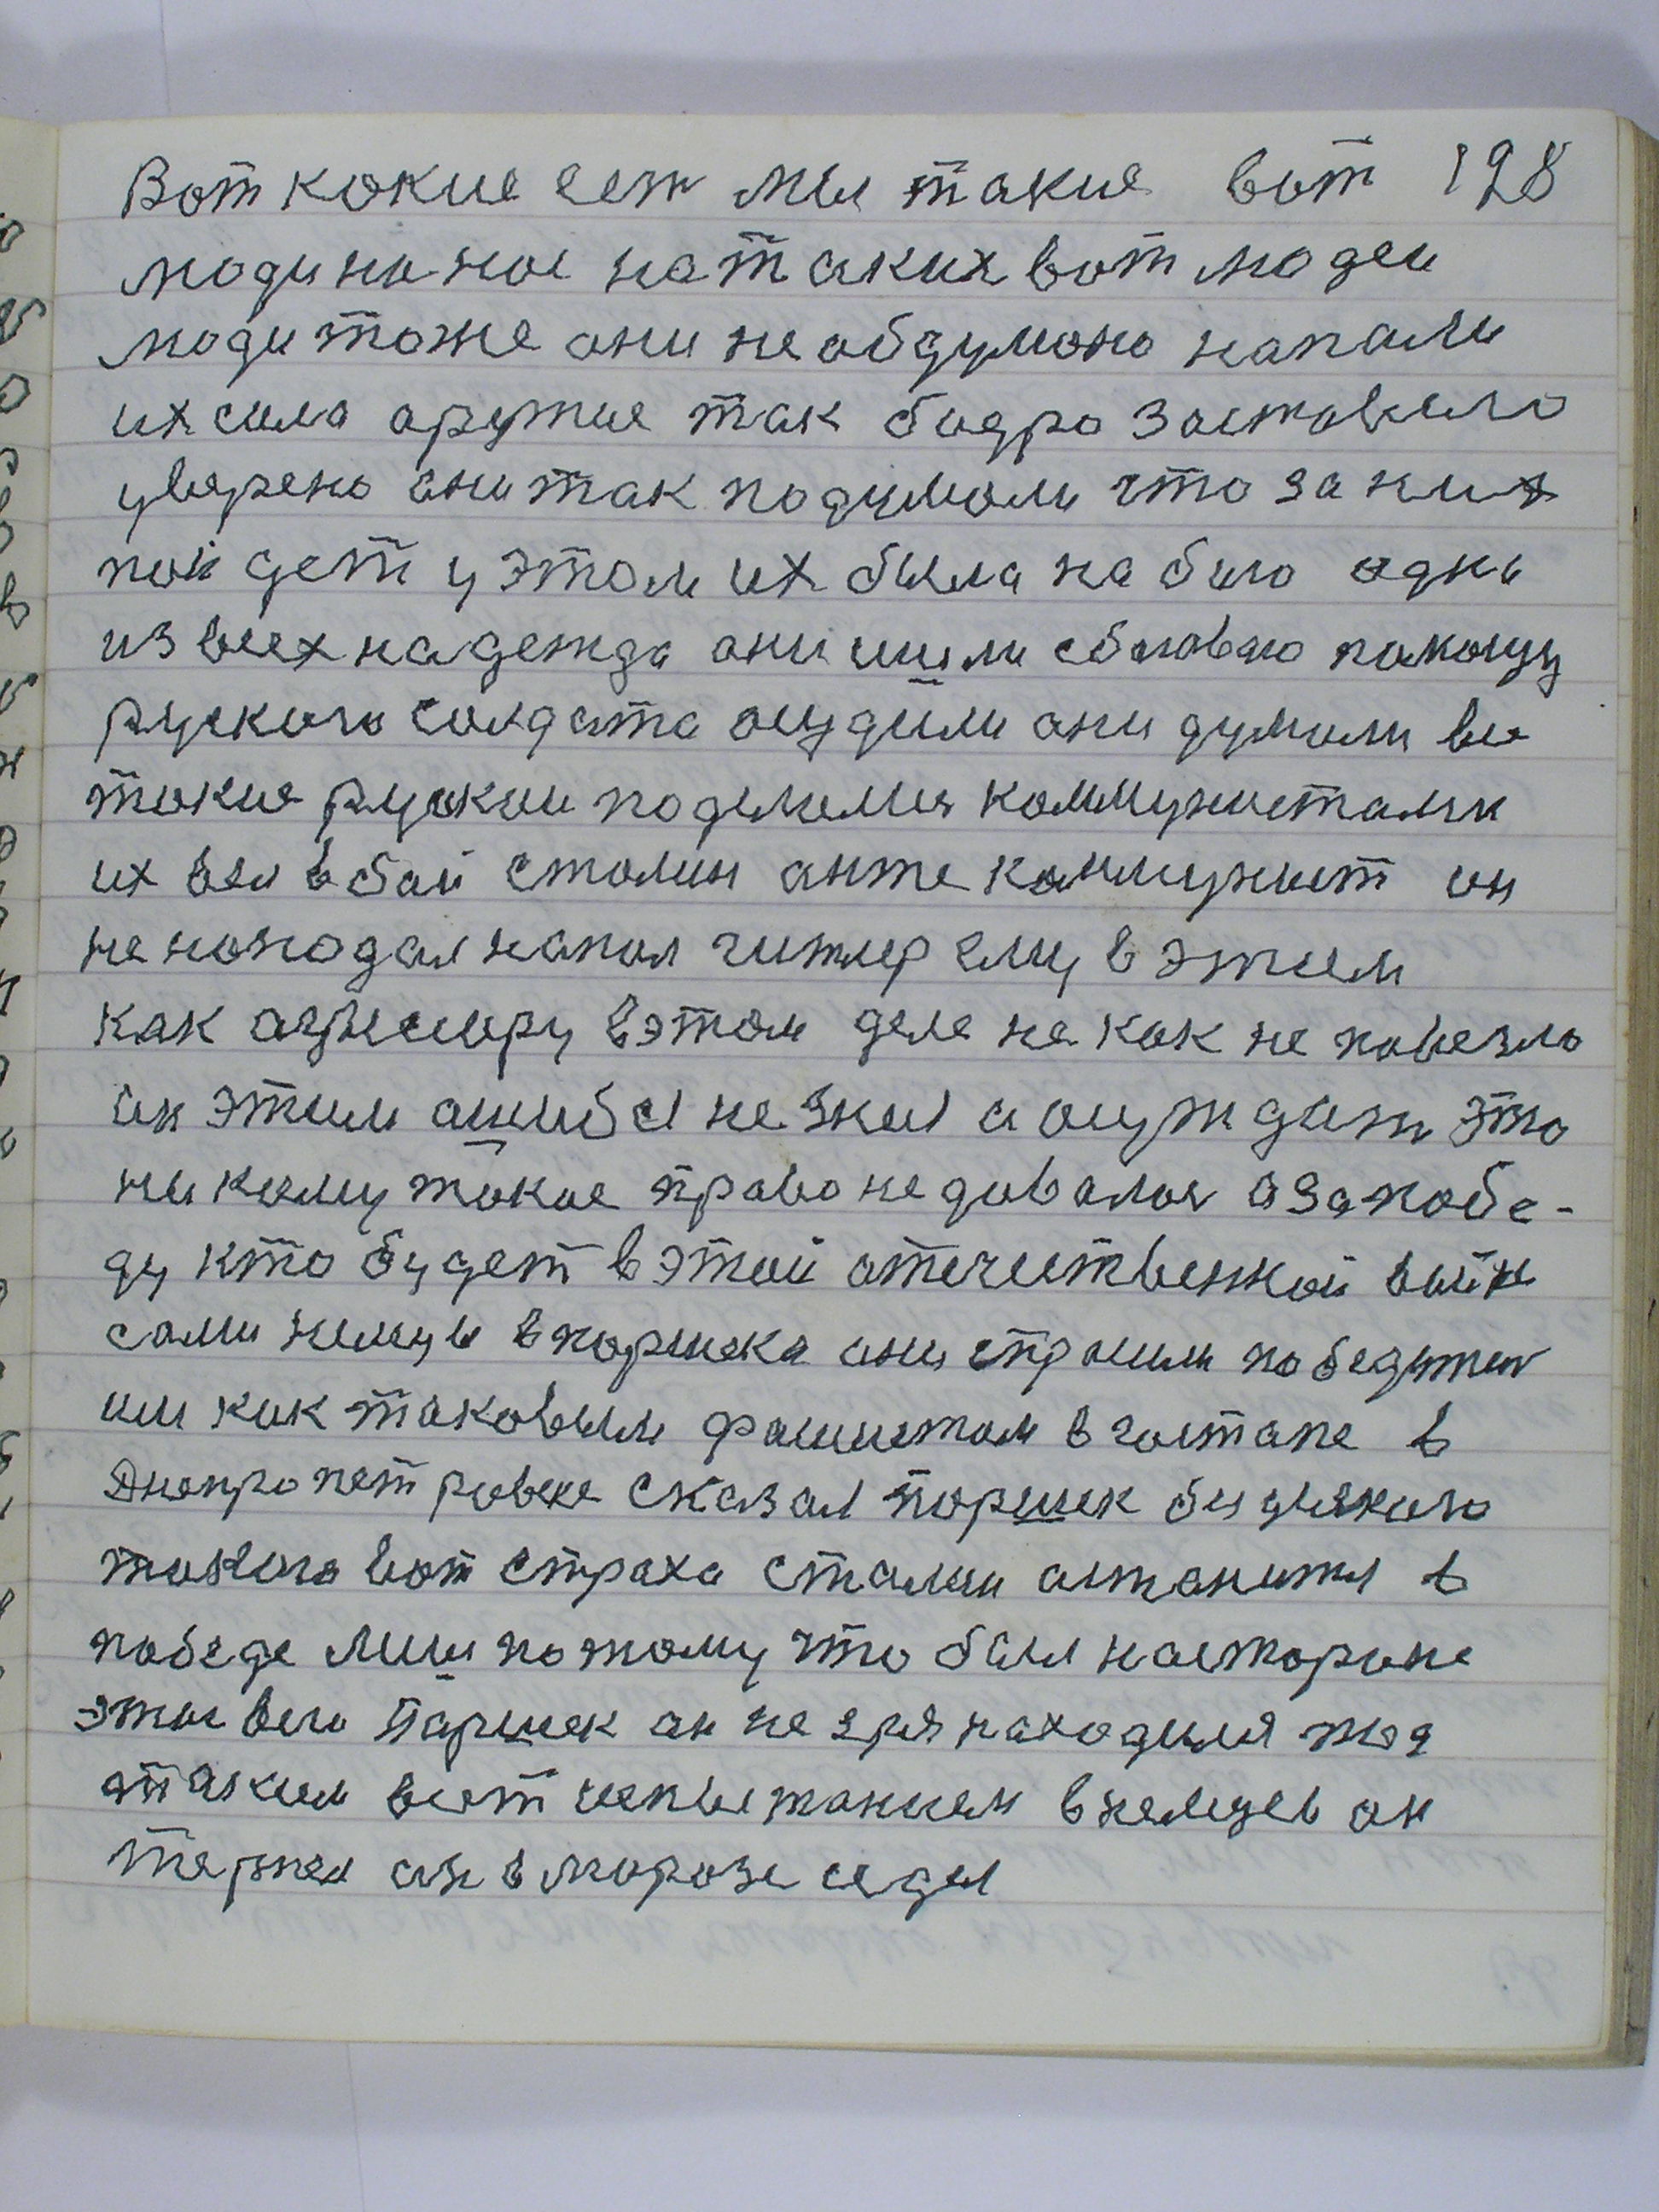 Вот какие есть мы такие вот 128
люди на нас на таких вот людеи
люди тоже они не обдумоно напали
их сила оружие так бодро заставило
уверено они так подумали что за них
пойдет у этом их была на бога одна
из всех надежда они шли с божою
руского солдата осудили они думали все
такие руские поделались коммунистами
их вел в бой сталин анте коммунист он
не нападал напал гитлер ему в этим
как агресору в этом деле не как не повезло
он этим ошибся не знал а осуждать это
ни кому такое право не довалось а за побе-
ду кто будет в этой отечитвенной войне
сами немцы в поршнека они спросили победител
им как таковым фашистам в гостапе в
Днепропетровске сказал поршнек без всякого
такого вот страха сталин астанится в
победе лиш потому что был на стороне
этого всего Паршнек он не зря находился под
таким вот испытанием в немцев он
терпел он в морозе сидел